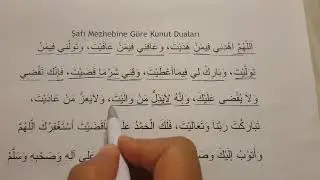 Şafi Mezhebine Göre Kunut Duaları
اَللّٰهُمَّ اهْدِنِي فِيمَنْ هَدَيْتَ، وَعَافِنِي فِيمَنْ عَافَيْتَ، وَتَوَلَّنِي فِيمَنْ
تَوَلَّيْتَ، وَبَارِكْ لِي فِيمَا أَعْطَيْتَ، وَقِنِي شَرَّ مَا قَضَيْتَ، فَإِنَّكَ تَقْضِي
وَلَا يُقْضَى عَلَيْكَ، وَإِنَّهُ لَا يَذِلُّ مَنْ وَالَيْتَ، وَلَا يَعِزُّ مَنْ عَادَيْتَ،
تَبَارَكْتَ رَبَّنَا وَتَعَالَيْتَ، فَلَكَ الْحَمْدُ عَلَى مَا قَضَيْتَ أَسْتَغْفِرُكَ اللّٰهُمَّ
وَأَتُوبُ إِلَيْكَ وَصَ عَلَى آلِهِ وَصَحْبِهِ وَسَلَّمَ